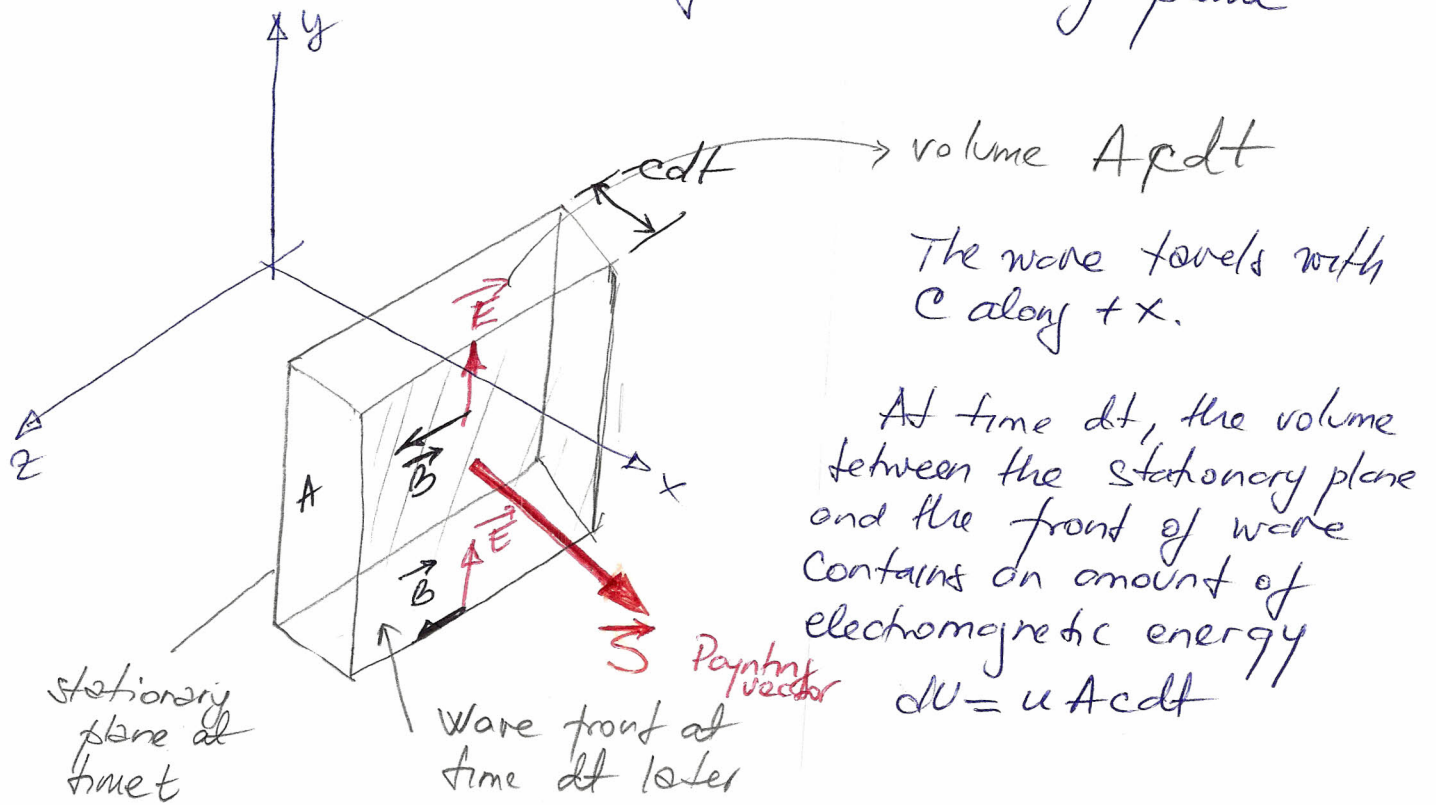 y
volume A c dt
cdt
The wave tavels with
C along + x.
E
z
B
A
x
At time dt, the volume
between the stationary plane
and the front of wave
Contains an amount of
electromagnetic energy
dU = u A c dt
E
B
S Poynting
vector
stationary
plane at
time t
Wave front at
time dt later